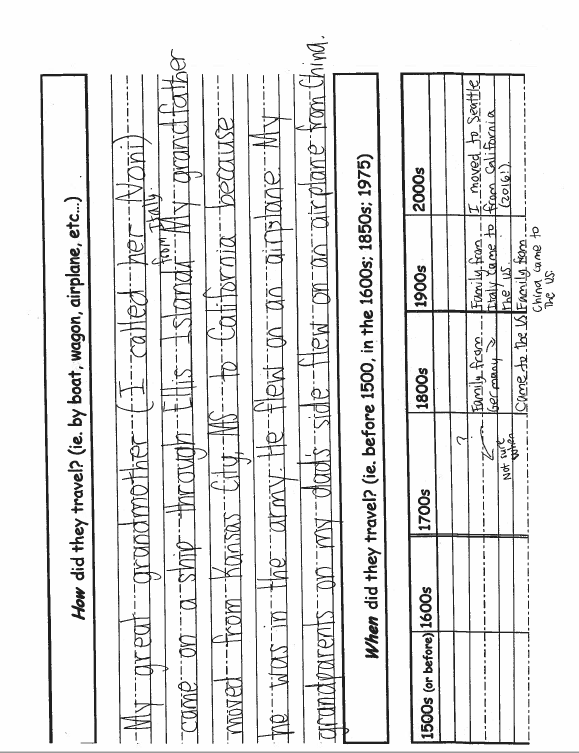 How did they travel? (ie. by boat, wagon, airplane, etc...)
My great grandmother (I called her Noni)
came on a ship through Ellis Island from Italy. My grandfather
moved from Kansas City, MS to California because
he was in the army. He flew on an airplane. My
grandparents on my dad's side flew on an airplane from China.
When did they travel? (ie. before 1500, in the 1600s; 1850s; 1975)
1500s (or before) 1600s 1700s 1800s 1900s 2000s
?
Not sure when
Family from Germany
Came to the US
Family from Italy came to the US
Family from China came to the US
I moved to Seattle from California (2016!)